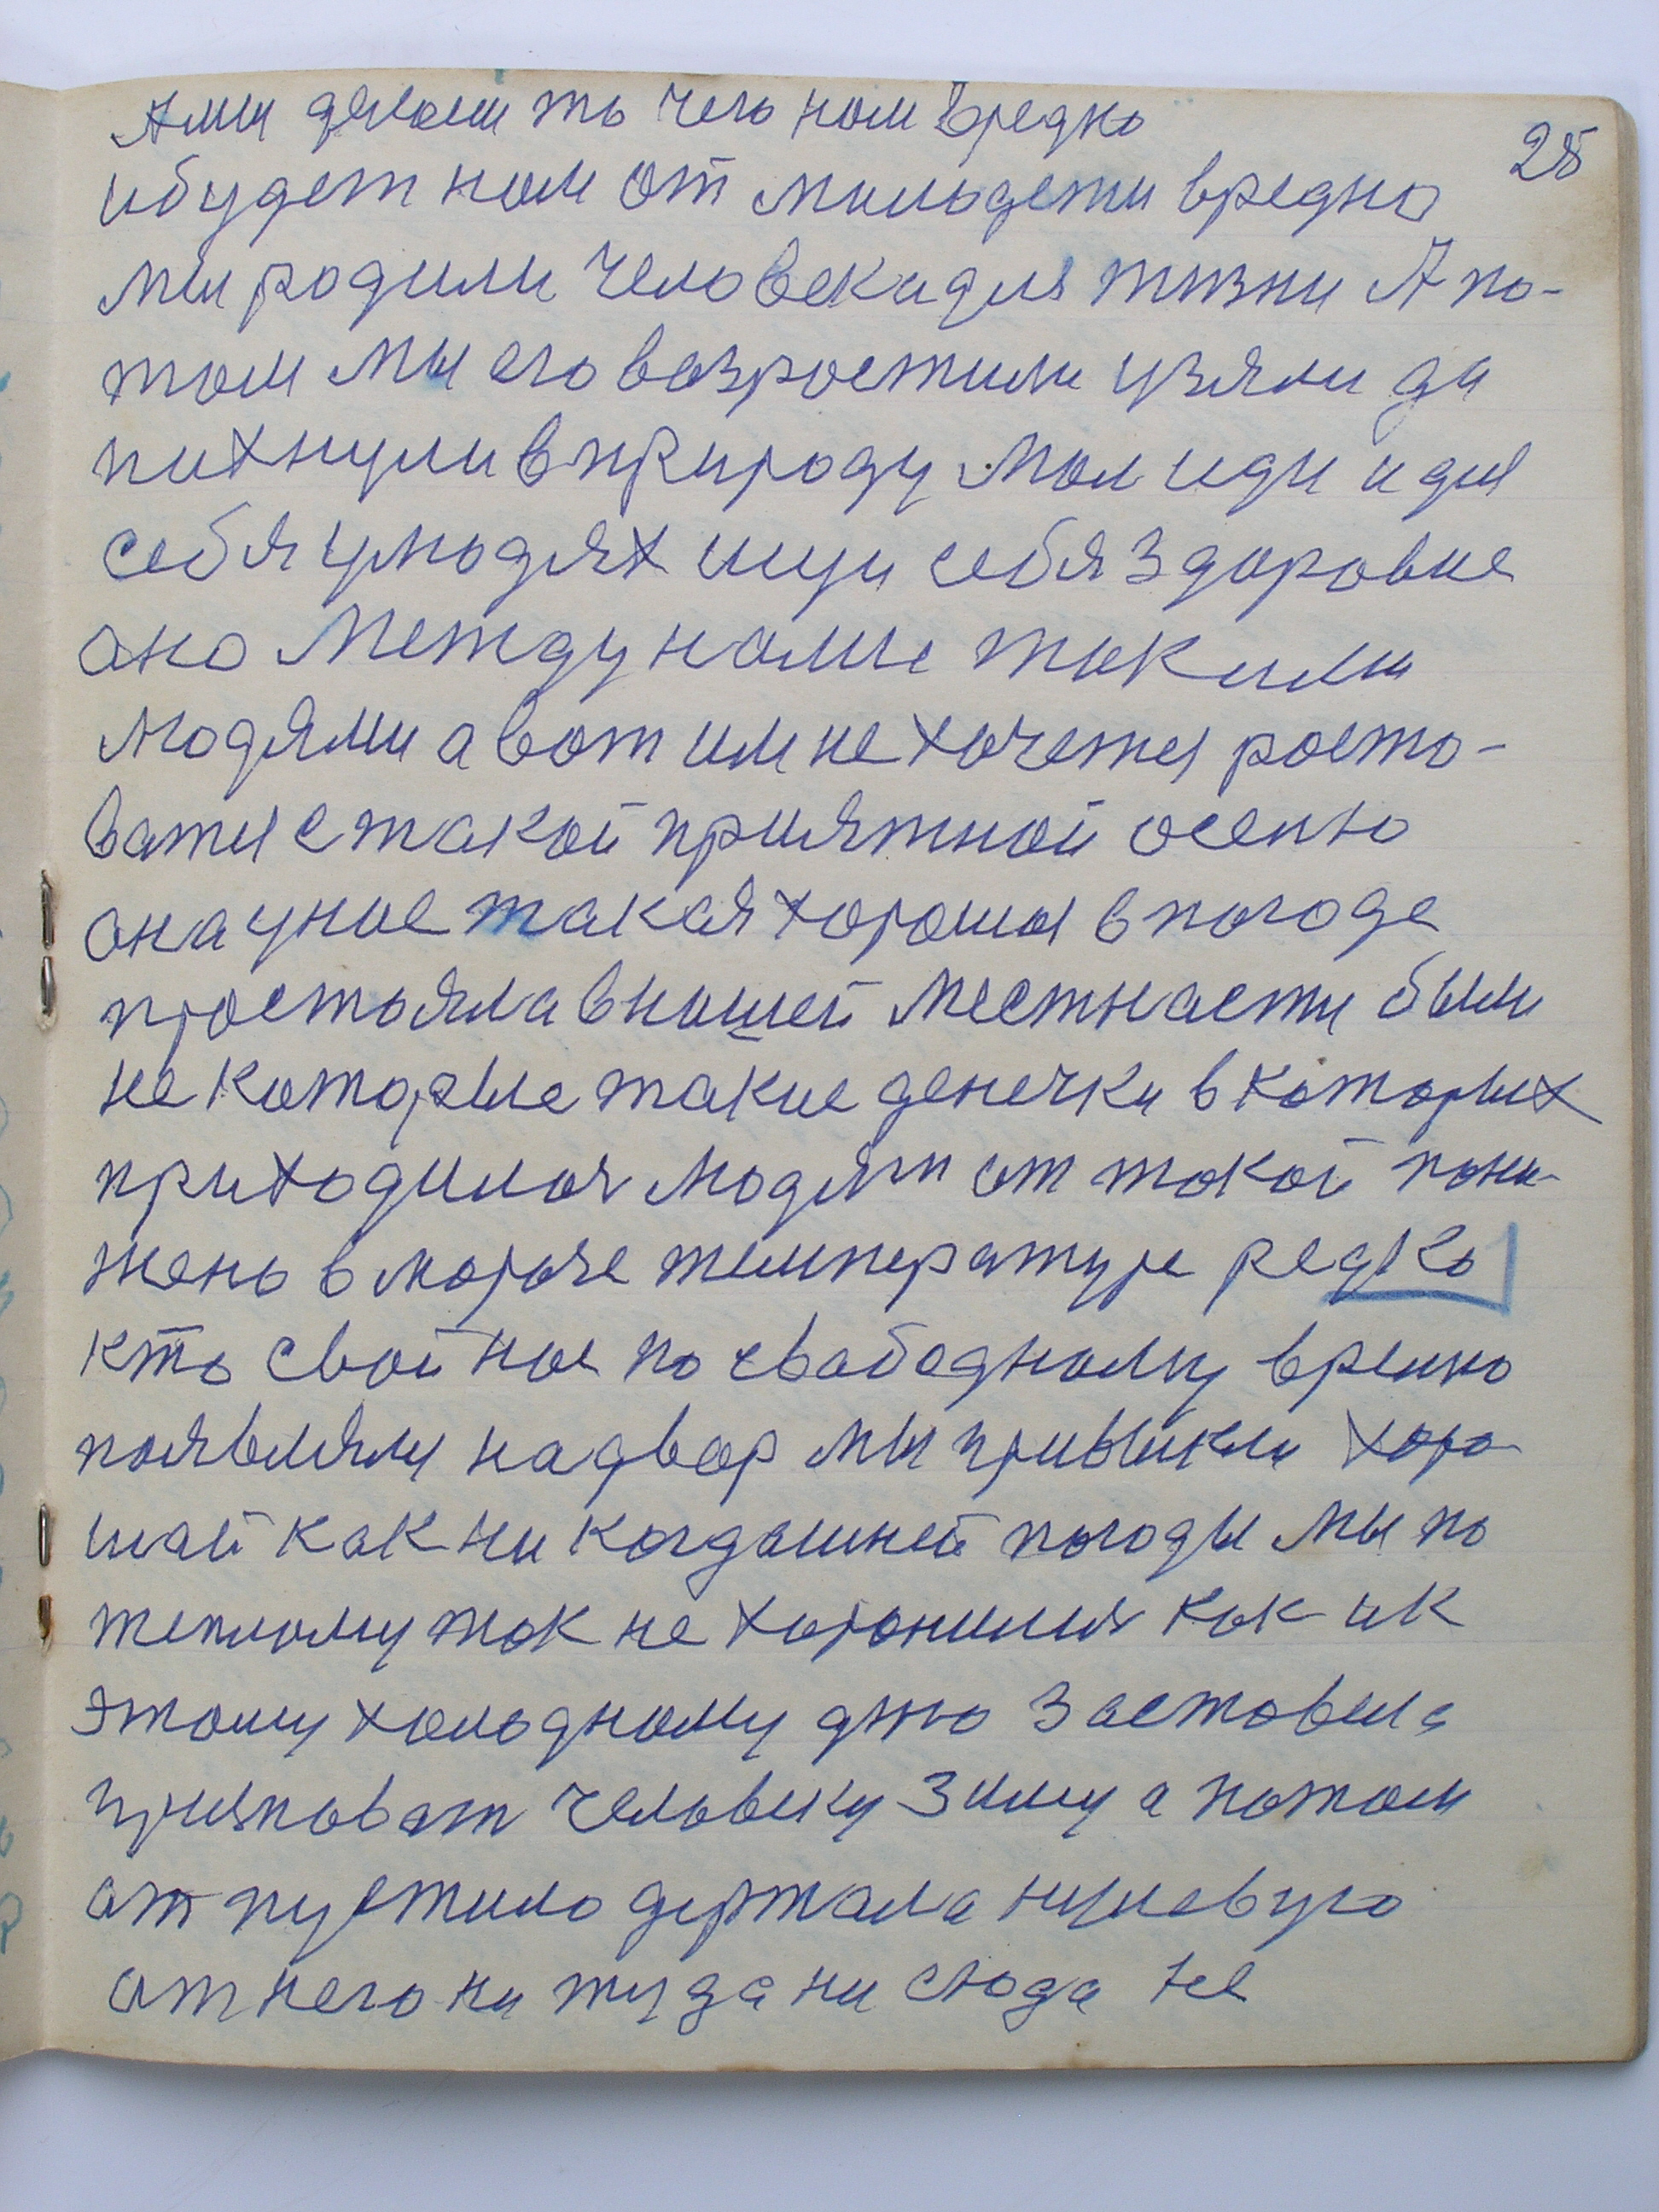 А мы делаем то чего нам вредно
25
и будет нам от мильдети вредно
мы родили человека для жизни А по-
том мы его возростили узяли да
пихнули в природу мол иди и для
себя у людях ищи себя здоровие
оно между нами такими
людями а вот им не хочется роста-
ватся с такой приятной осеню
она у нас такая хорошая в погоде
простояла в нашей местнасти были
не которые такие денечки в каторых
приходилось людям от такой пони-
жено в морозе температуре редко
кто свой нос по свабодному время
появляли на двор мы привыкли харо
шай как ни когдашней погоды мы по
теплому так не хоронился как и к
этому холодному дню заставила
прияповат человеку зиму а потом
атпустило держала нулевую
от него ни туда ни сюда не